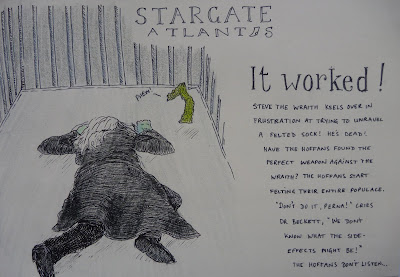 STARGATE
ATLANTIS
PHEW!
It worked!
STEVE THE WRAITH KEELS OVER IN
FRUSTRATION AT TRYING TO UNRAVEL
A FELTED SOCK! HES DEAD!
HAVE THE HOFFANS FOUND THE
PERFECT WEAPON AGAINST THE
WRAITH? THE HOFFANS START
FELTING THEIR ENTIRE POPULACE.
"DON'T DO IT, PERNA!" CRIES
DR BECKETT, "WE DON'T
KNOW WHAT THE SIDE-
EFFECTS MIGHT BE!"
THE HOFFANS DON'T LISTEN...